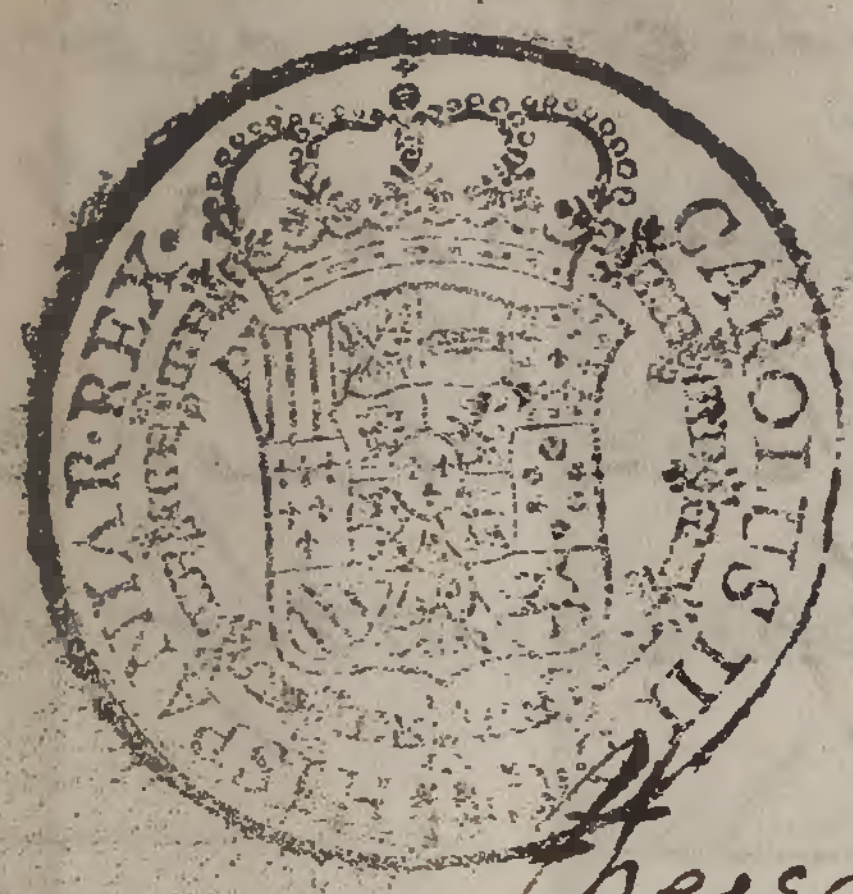 CAROLUS III D G HISPANIAR·REX·